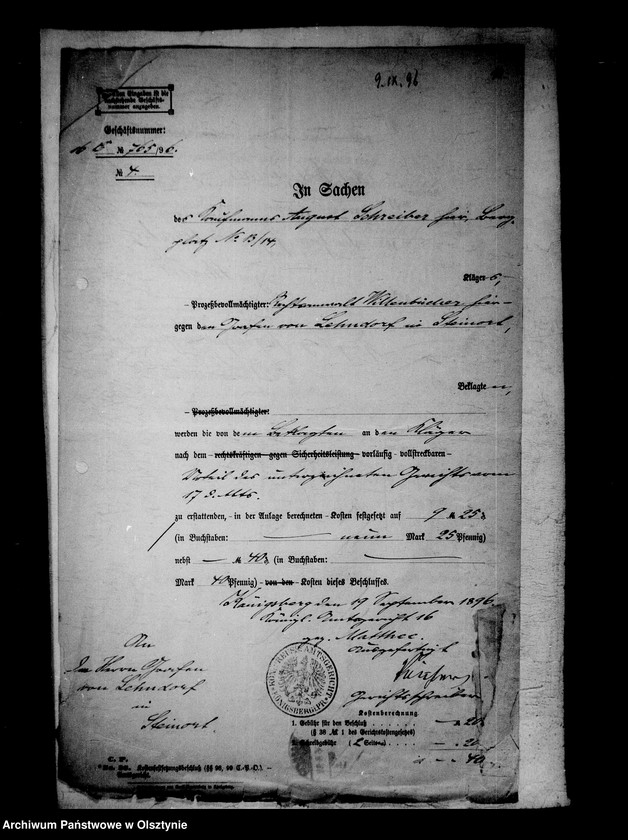 9. IX. 96
Bei allen Eingaben ist die
vorstehende Geschäfts-
nummer anzugeben.
Geschäftsnummer:
16 C № 765/96.
№ 4.
In Sachen
des Kaufmanns August Schreiber hier, Berg-
platz No 13/14,
Kläger s,
– Prozeßbevollmächtigter: Rechtsanwalt hier –
gegen den Grafen von Lehndorf in Steinort,
Beklagten,
– Prozeßbevollmächtigter:
werden die von dem Beklagten an den Kläger
nach dem – rechtskräftigen – gegen Sicherheitsleistung – vorläufig – vollstreckbaren –
Urteil des unterzeichneten Gerichts vom
17 d. Mts.
zu erstattenden, – in der Anlage berechneten – Kosten festgesetzt auf 9 M 25 ₰
(in Buchstaben: neun Mark 25 Pfennig)
nebst — M 40 ₰ (in Buchstaben: —
Mark 40 Pfennig) – von den – Kosten dieses Beschlusses.
Königsberg den 19 September 1896
Königl. Amtsgericht 16
gez. Matthee.
Ausgefertigt
Gerichtsschreiber
An
den Herrn Grafen
von Lehndorf
in
Steinort.
KÖN. PREUSS. AMTSGERICHT
KÖNIGSBERG I/PR.
Kostenberechnung.
1. Gebühr für den Beschluß — M 20
(§ 38 № 1 des Gerichtskostengesetzes)
2. Schreibgebühr (2 Seiten) — 20
— 40
C. P.
Kostenfestsetzungsbeschluß (§§ 98, 99 C.-P.-O.) –
Amtsgericht.
Archiwum Państwowe w Olsztynie